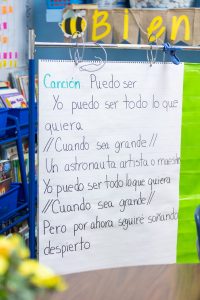 Bien
Canción Puedo ser
Yo puedo ser todo lo que
quiera
//Cuando sea grande//
Un astronauta artista o maestro
Yo puedo ser todo lo que quiera
//Cuando sea grande//
Pero por ahora seguiré soñando
despierto